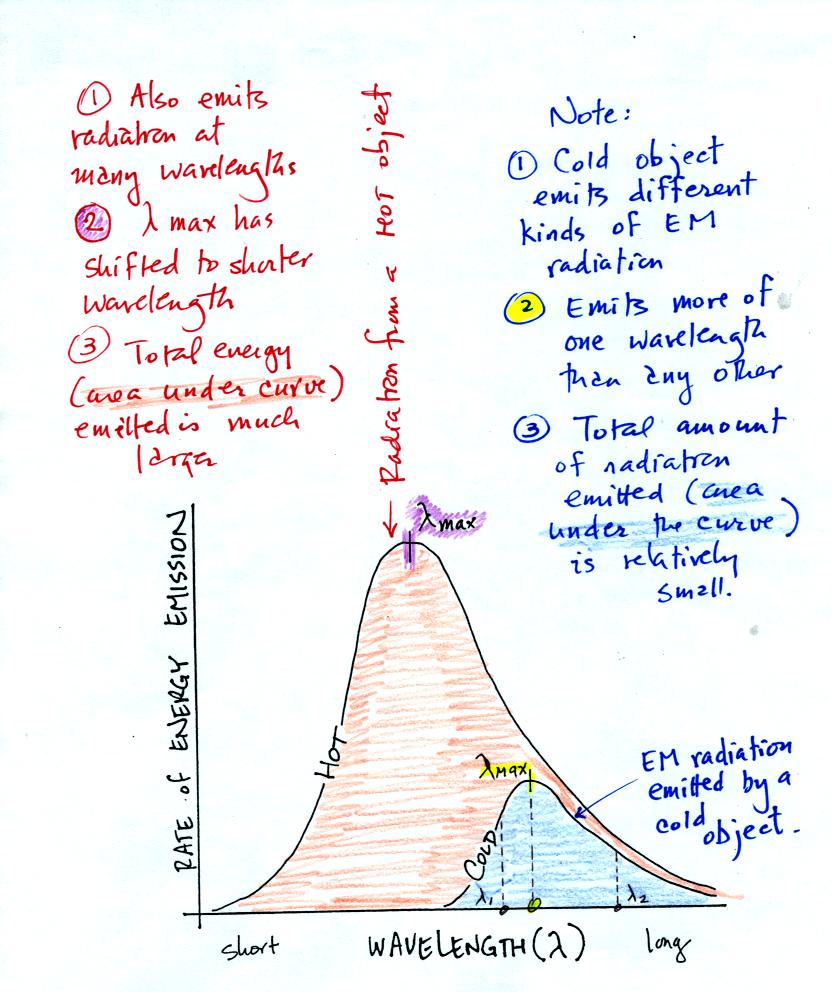 ① Also emits
radiation at
many wavelengths
② λ max has
shifted to shorter
wavelength
③ Total energy
(area under curve)
emitted is much
larger
Radiation from a HOT object
Note:
① Cold object
emits different
kinds of EM
radiation
② Emits more of
one wavelength
than any other
③ Total amount
of radiation
emitted (area
under the curve)
is relatively
small.
λmax
RATE of ENERGY EMISSION
HOT
λmax
COLD
EM radiation
emitted by a
cold object.
λ₁
λ₂
short
WAVELENGTH (λ)
long